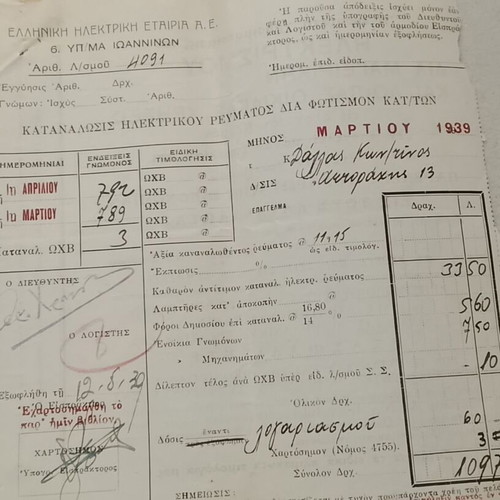 ΕΛΛΗΝΙΚΗ ΗΛΕΚΤΡΙΚΗ ΕΤΑΙΡΙΑ Α.Ε.
6. ΥΠ/ΜΑ ΙΩΑΝΝΙΝΩΝ
Ἀριθ. Λ/σμοῦ 4091
Ἐγγύησις Ἀριθ. Δρχ.
Γνώμων: Ἰσχὺς Σύστ. Ἀριθ.
Ἡ παροῦσα ἀπόδειξις ἰσχύει μόνον
φέρῃ πλὴν τῆς ὑπογραφῆς τοῦ Διευθυντοῦ
καὶ Λογιστοῦ καὶ τὴν τοῦ ἁρμοδίου Εἰσπρά
κτορος, ὡς καὶ ἡμερομηνίαν ἐξοφλήσεως.
Ἡμερομ. ἐπιδ. εἰδοπ.
ΚΑΤΑΝΑΛΩΣΙΣ ΗΛΕΚΤΡΙΚΟΥ ΡΕΥΜΑΤΟΣ ΔΙΑ ΦΩΤΙΣΜΟΝ ΚΑΤ/ΤΩΝ
ΗΜΕΡΟΜΗΝΙΑΙ ΕΝΔΕΙΞΕΙΣ ΓΝΩΜΟΝΟΣ ΕΙΔΙΚΗ ΤΙΜΟΛΟΓΗΣΙΣ
1η ΑΠΡΙΛΙΟΥ 792 ΩΧΒ @
ΩΧΒ @
1η ΜΑΡΤΙΟΥ 789 ΩΧΒ @
ΩΧΒ @
Καταναλ. ΩΧΒ 3 ΩΧΒ @
ΜΗΝΟΣ ΜΑΡΤΙΟΥ 1939
Κ
Δ/ΣΙΣ 13
ΕΠΑΓΓΕΛΜΑ
Δραχ. Λ.
Ἀξία καταναλωθέντος ρεύματος @ 11,15 ὡς εἰδ. τιμολόγ.
Ἔκπτωσις %
Καθαρὸν ἀντίτιμον καταναλ. ἠλεκτρ. ρεύματος 33 50
Λαμπτῆρες κατ' ἀποκοπὴν
Φόροι Δημοσίου ἐπὶ καταναλ. @ 16,80 14 % 5 60
Ἐνοίκια Γνωμόνων 7 50
Μηχανημάτων
Δίλεπτον τέλος ἀνὰ ΩΧΒ ὑπὲρ εἰδ. λ/σμοῦ Σ. Σ. - 10
Ὁλικὸν Δρχ.
Δόσις ἔναντι λογαριασμοῦ 60
Χαρτόσημον (Νόμος 4755).
Σύνολον Δρχ.
Ο ΔΙΕΥΘΥΝΤΗΣ
Ο ΛΟΓΙΣΤΗΣ
Ἐξωφλήθη τῇ 12.5.39
Ὁ Εἰσπράκτωρ
Ἐχαρτοσημάνθη τὸ
παρ' ἡμῖν βιβλίον
ΧΑΡΤΟΣΗΜΟΝ
Ὑπογρ. Εἰσπράκτορος
ΣΗΜΕΙΩΣΙΣ: